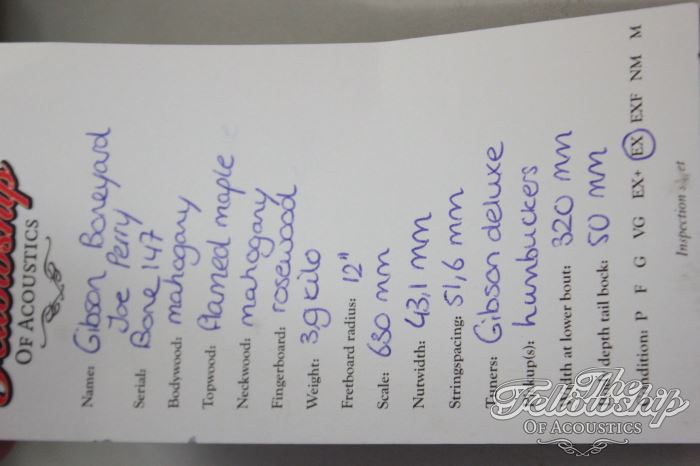 Fellowship
OF ACOUSTICS
Name: Gibson Boneyard
Joe Perry
Serial: Bone 147
Bodywood: mahogany
Topwood: flamed maple
Neckwood: mahogany
Fingerboard: rosewood
Weight: 3,9 kilo
Fretboard radius: 12"
Scale: 630 mm
Nutwidth: 43,1 mm
Stringspacing: 51,6 mm
Tuners: Gibson deluxe
Pickup(s): humbuckers
Width at lower bout: 320 mm
depth tail bock: 50 mm
Condition: P F G VG EX+ EX EXF NM M
Inspection sheet
The
Fellowship
OF ACOUSTICS